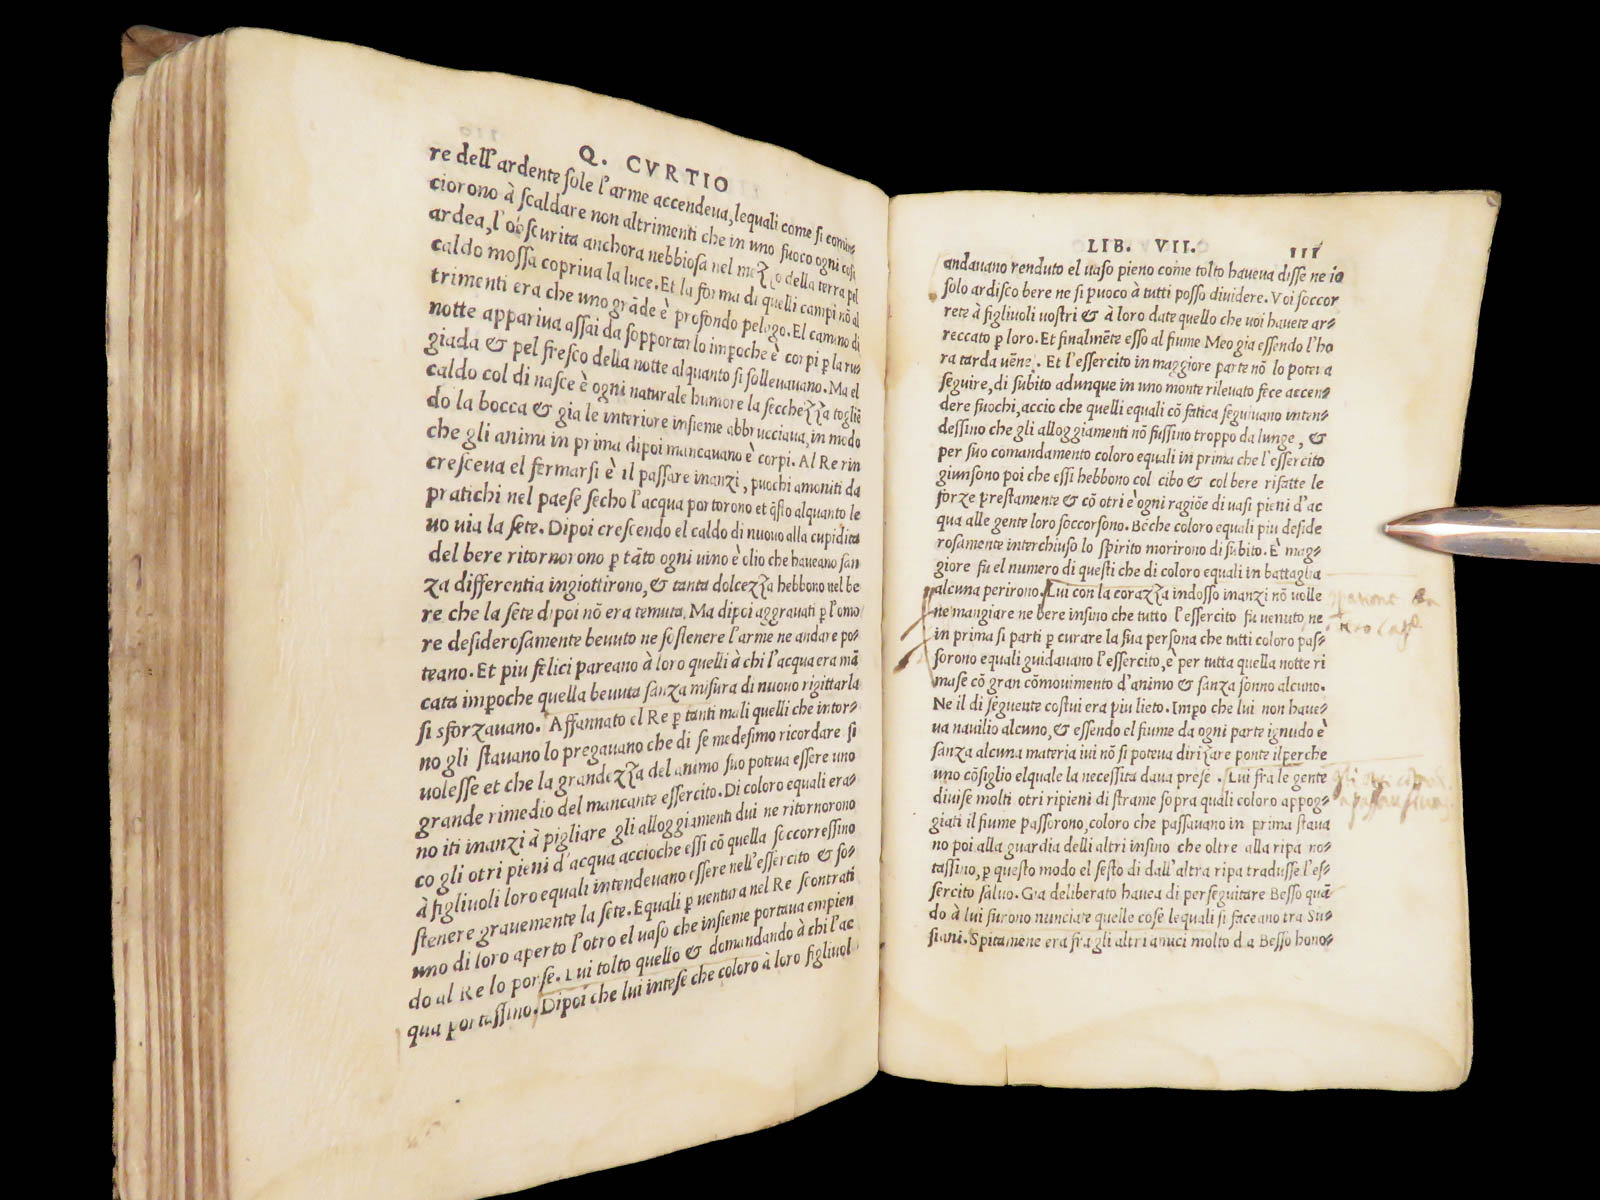 Q. CVRTIO
re dell'ardente sole l'arme accendeua, lequali come si comin=
ciorono à scaldare non altrimenti che in uno fuoco ogni cosa
ardea, l'obscurita anchora nebbiosa nel mezzo della terra pel
caldo mossa copriua la luce. Et la forma di quelli campi nō al
trimenti era che uno grāde è profondo pelago. El camino di
notte appariua assai da sopportarlo imꝑoche è corpi ꝑ la ru=
giada & pel fresco della notte alquanto si solleuauano. Ma el
caldo col di nasce è ogni naturale humore la secchezza togliē
do la bocca & gia le interiore insieme abbrucciaua, in modo
che gli animi in prima dipoi mancauano è corpi. Al Re rin
cresceua el fermarsi è il passare inanzi, puochi amoniti da
pratichi nel paese secho l'acqua portorono et q̄sto alquanto le
uo uia la sete. Dipoi crescendo el caldo di nuouo alla cupidita
del bere ritornorono ꝑ tāto ogni uino è olio che haueano san
za differentia ingiottirono, & tanta dolcezza hebbono nel be
re che la sete dipoi nō era temuta. Ma dipoi aggrauati ꝑ l'omo
re desiderosamente beuuto ne sostenere l'arme ne andare po=
teano. Et piu felici pareano à loro quelli à chi l'acqua era mā
cata imꝑoche quella beuuta sanza misura di nuouo rigittarla
si sforzauano. Affannato el Re ꝑ tanti mali quelli che intor=
no gli stauano lo pregauano che di se medesimo ricordare si
uolesse et che la grandezza del animo suo poteua essere uno
grande rimedio del mancante essercito. Di coloro equali era=
no iti inanzi à pigliare gli alloggiamenti dui ne ritornorono
co gli otri pieni d'acqua accioche essi cō quella soccorressino
à figliuoli loro equali intendeuano essere nell'essercito & so=
stenere grauemente la sete. Equali ꝑ uentura nel Re scontrati
uno di loro aperto l'otro el uaso che insieme portaua empien
do al Re lo porse. Lui tolto quello & domandando à chi l'ac
qua portassino. Dipoi che lui intese che coloro à loro figliuol
LIB. VII. 111
andauano renduto el uaso pieno come tolto haueua disse ne io
solo ardisco bere ne si puoco à tutti posso diuidere. Voi soccor
rete à figliuoli uostri & à loro date quello che uoi hauete ar=
reccato ꝑ loro. Et finalmēte esso al fiume Meo gia essendo l'ho
ra tarda uēne. Et l'essercito in maggiore parte nō lo poteua
seguire, di subito adunque in uno monte rileuato fece accen=
dere fuochi, accio che quelli equali cō fatica seguiuano inten=
dessino che gli alloggiamenti nō fussino troppo da lunge, &
per suo comandamento coloro equali in prima che l'essercito
giunsono poi che essi hebbono col cibo & col bere rifatte le
forze prestamente & cō otri è ogni ragiōe di uasi pieni d'ac
qua alle gente loro soccorsono. Bēche coloro equali piu deside
rosamente interchiuso lo spirito morirono di subito. È mag=
giore fu el numero di questi che di coloro equali in battaglia
alcuna perirono. Lui con la corazza indosso inanzi nō uolle
ne mangiare ne bere insino che tutto l'essercito fu uenuto ne
in prima si parti ꝑ curare la sua persona che tutti coloro pas=
sorono equali guidauano l'essercito, è per tutta quella notte ri
mase cō gran cōmouimento d'animo & sanza sonno alcuno.
Ne il di seguente costui era piu lieto. Imꝑo che lui non haue=
ua nauilio alcuno, & essendo el fiume da ogni parte ignudo è
sanza alcuna materia iui nō si poteua dirizare ponte il perche
uno cōsiglio elquale la necessita daua prese. Lui fra le gente
diuise molti otri ripieni di strame sopra quali coloro appog=
giati il fiume passorono, coloro che passauano in prima staua
no poi alla guardia delli altri insino che oltre alla ripa no=
tassino, ꝑ questo modo el sesto di dall'altra ripa tradusse l'es=
sercito saluo. Gia deliberato hauea di perseguitare Besso quā=
do à lui furono nunciate quelle cose lequali si faceano tra Su=
siani. Spitamene era fra gli altri amici molto da Besso hono=